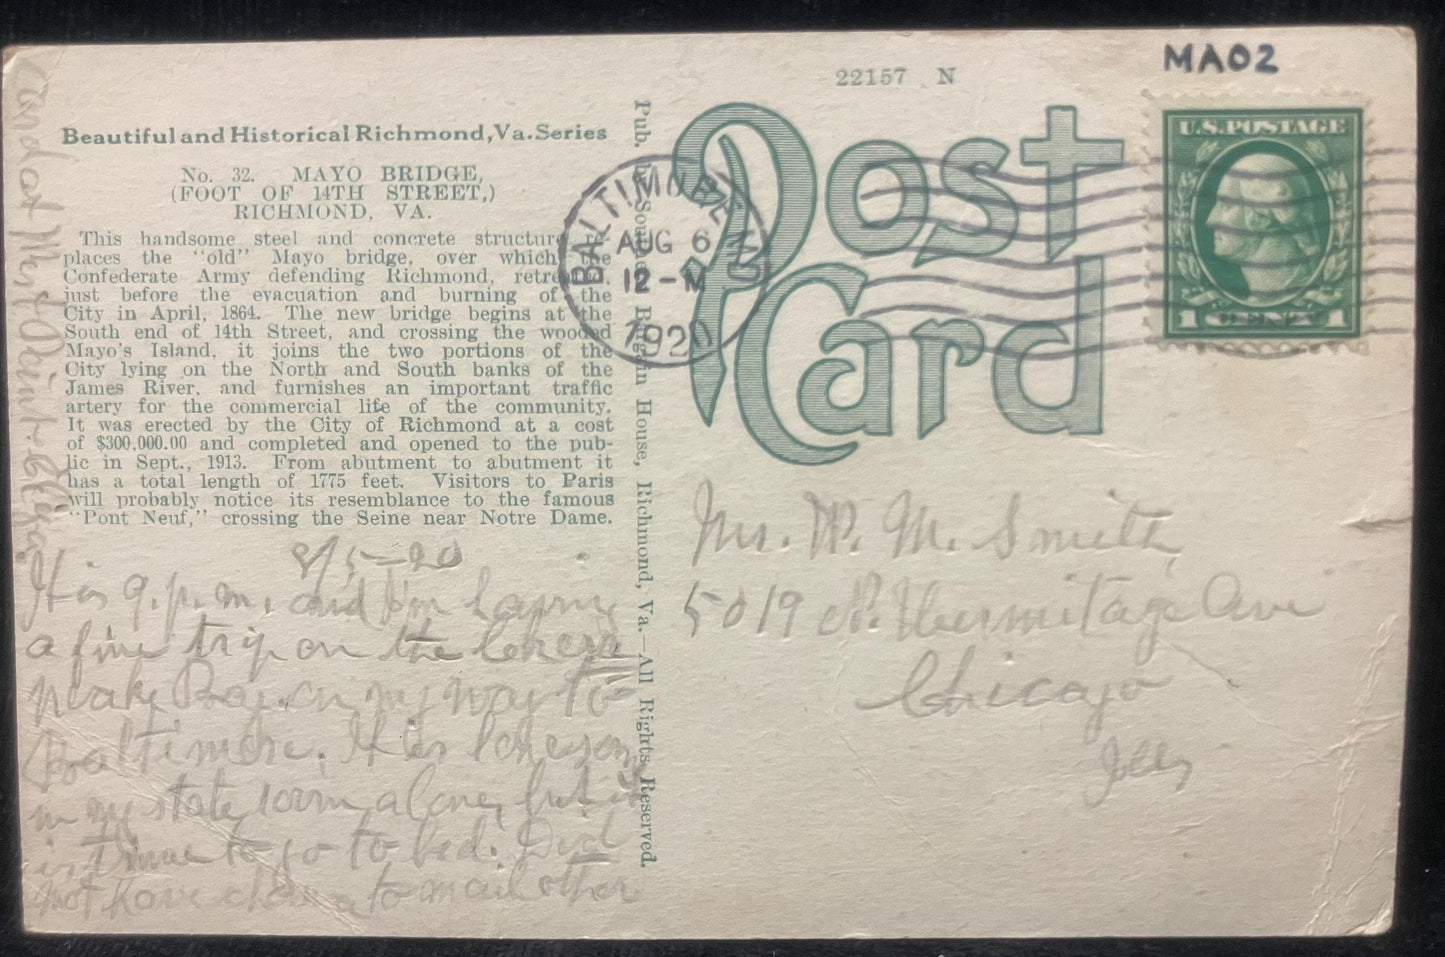 MA02
22157 N
Post
Card
U.S. POSTAGE
1 CENT 1
BALTIMORE, MD
AUG 6
12-M
1920
Beautiful and Historical Richmond, Va. Series
No. 32. MAYO BRIDGE,
(FOOT OF 14TH STREET,)
RICHMOND, VA.
This handsome steel and concrete structure re-
places the "old" Mayo bridge, over which the
Confederate Army defending Richmond, retreated,
just before the evacuation and burning of the
City in April, 1864. The new bridge begins at the
South end of 14th Street, and crossing the wooded
Mayo's Island, it joins the two portions of the
City lying on the North and South banks of the
James River, and furnishes an important traffic
artery for the commercial life of the community.
It was erected by the City of Richmond at a cost
of $300,000.00 and completed and opened to the pub-
lic in Sept., 1913. From abutment to abutment it
has a total length of 1775 feet. Visitors to Paris
will probably notice its resemblance to the famous
"Pont Neuf," crossing the Seine near Notre Dame.
Pub. by Southern Bargain House, Richmond, Va.—All Rights Reserved.
8/5-20
It is 9. p.m. and I'm having
a fine trip on the Chesa
peake Bay on my way to
Baltimore. It is lonesom
in my state room alone, but it
is time to go to bed. Did
not have chance to mail other
card at Myt Point.
Mr. W. M. Smith,
5019 N. Hermitage Ave
Chicago
Ills